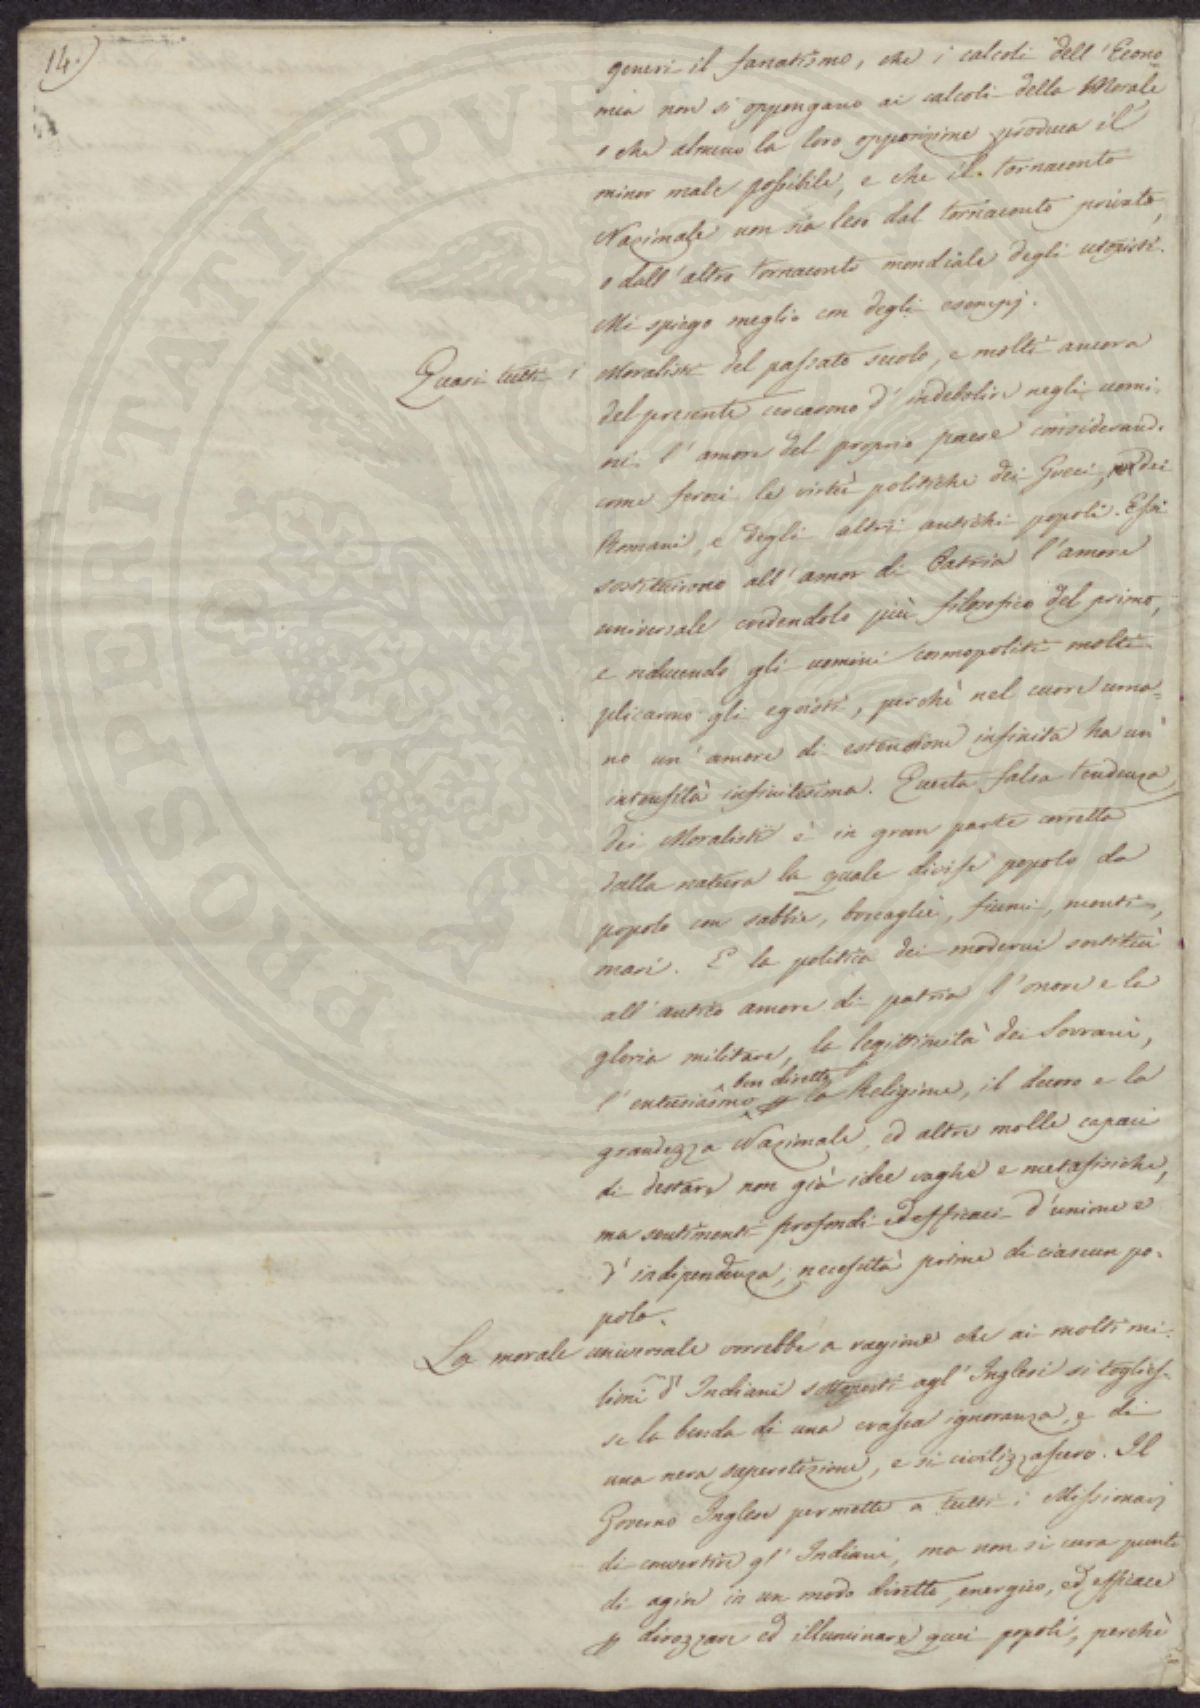 14.)
generi il fanatismo, che i calcoli dell'Econo=
mia non si oppongano ai calcoli della Morale
o che almeno la loro opposizione produca il
minor male possibile, e che il tornaconto
Nazionale non sia leso dal tornaconto privato,
o dall'altro tornaconto mondiale degli utopisti.
Mi spiego meglio con degli esempj.
Quasi tutti i Moralisti del passato secolo, e molti ancora
del presente cercarono d'indebolire negli uomi=
ni l'amore del proprio paese considerando
come feroci le virtù politiche dei Greci, dei
Romani, e degli altri antichi popoli. Essi
sostituirono all'amor di Patria l'amore
universale credendolo più filosofico del primo,
e riducendo gli uomini cosmopoliti molti=
plicarono gli egoisti, perchè nel cuore uma=
no un'amore di estensione infinita ha un'
intensità infinitesima. Questa falsa tendenza
dei Moralisti è in gran parte corretta
dalla natura la quale divise popolo da
popolo con sabbie, boscaglie, fiumi, monti,
mari. E la politica dei moderni sostituì
all'antico amore di patria l'onore e la
gloria militare, la legittimità dei Sovrani,
ben diretto
l'entusiasmo p la Religione, il decoro e la
grandezza Nazionale, ed altre molle capaci
di destare non già idee vaghe e metafisiche,
ma sentimenti profondi ed efficaci d'unione e
d'indipendenza, necessità prime di ciascun po=
polo.
La morale universale vorrebbe a ragione che ai molti mi=
lioni d'Indiani sottoposti agl'Inglesi si toglies=
se la benda di una crassa ignoranza, e di
una nera superstizione, e si civilizzassero. Il
Governo Inglese permette a tutti i Missionarj
di convertire gl'Indiani, ma non si cura punto
di agire in un modo diretto, energico, ed efficace
p dirozzare ed illuminare quei popoli, perchè
PROSPERITATI PVBL